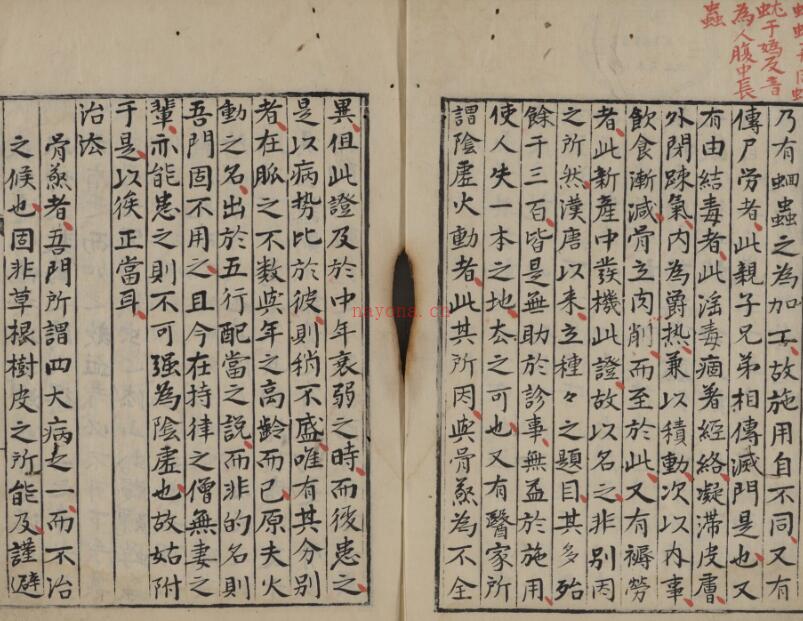 蚘于媯反音
為人腹中長
蟲
乃有蛔蟲之為加工故施用自不同又有
傳尸労者此親子兄弟相傳滅門是也又
有由結毒者此淫毒痼著經絡凝滞皮膚
外閉踈氣内為爵热兼以積動次以内事
飲食漸減骨立肉削而至於此又有褥勞
者此新産中發機此證故以名之非別因
之所然漢唐以来立種々之題目其多殆
餘千三百皆是無助於診事無益於施用
使人失一本之地厺之可也又有醫家所
謂陰虚火動者此其所因與骨蒸為不全
異但此證及於中年衰弱之時而後患之
是以病势比於彼則稍不盛唯有其分別
者在脈之不数與年之高齡而已原夫火
動之名出於五行配當之説而非的名則
吾門固不用之且今在持律之僧無妻之
輩亦能患之則不可强為陰虚也故姑附
于是以俟正當耳
治法
骨蒸者吾門所謂四大病之一而不治
之候也固非草根樹皮之所能及謹避
nayona.cn